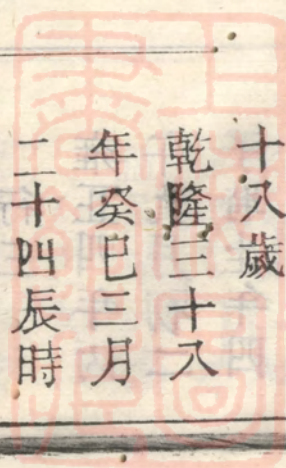 十八歲
乾隆三十八
年癸巳三月
二十四辰時